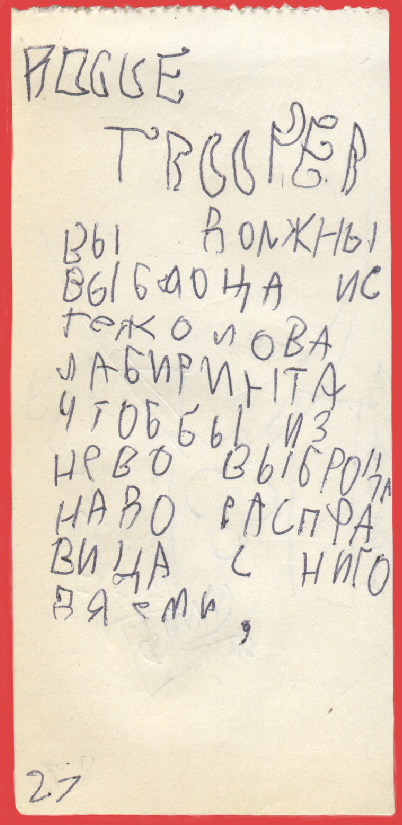 ROGUE
TROOPER
ВЫ ДОЛЖНЫ
ВЫБАОЦА ИС
ТЕЖОЛОВА
ЛАБИРИНТА
ЧТОББЫ ИЗ
НЕВО ВЫБРОЦА
НАВО РАСПРА
ВИЦА С НИГО
ДЯЕМИ,
27